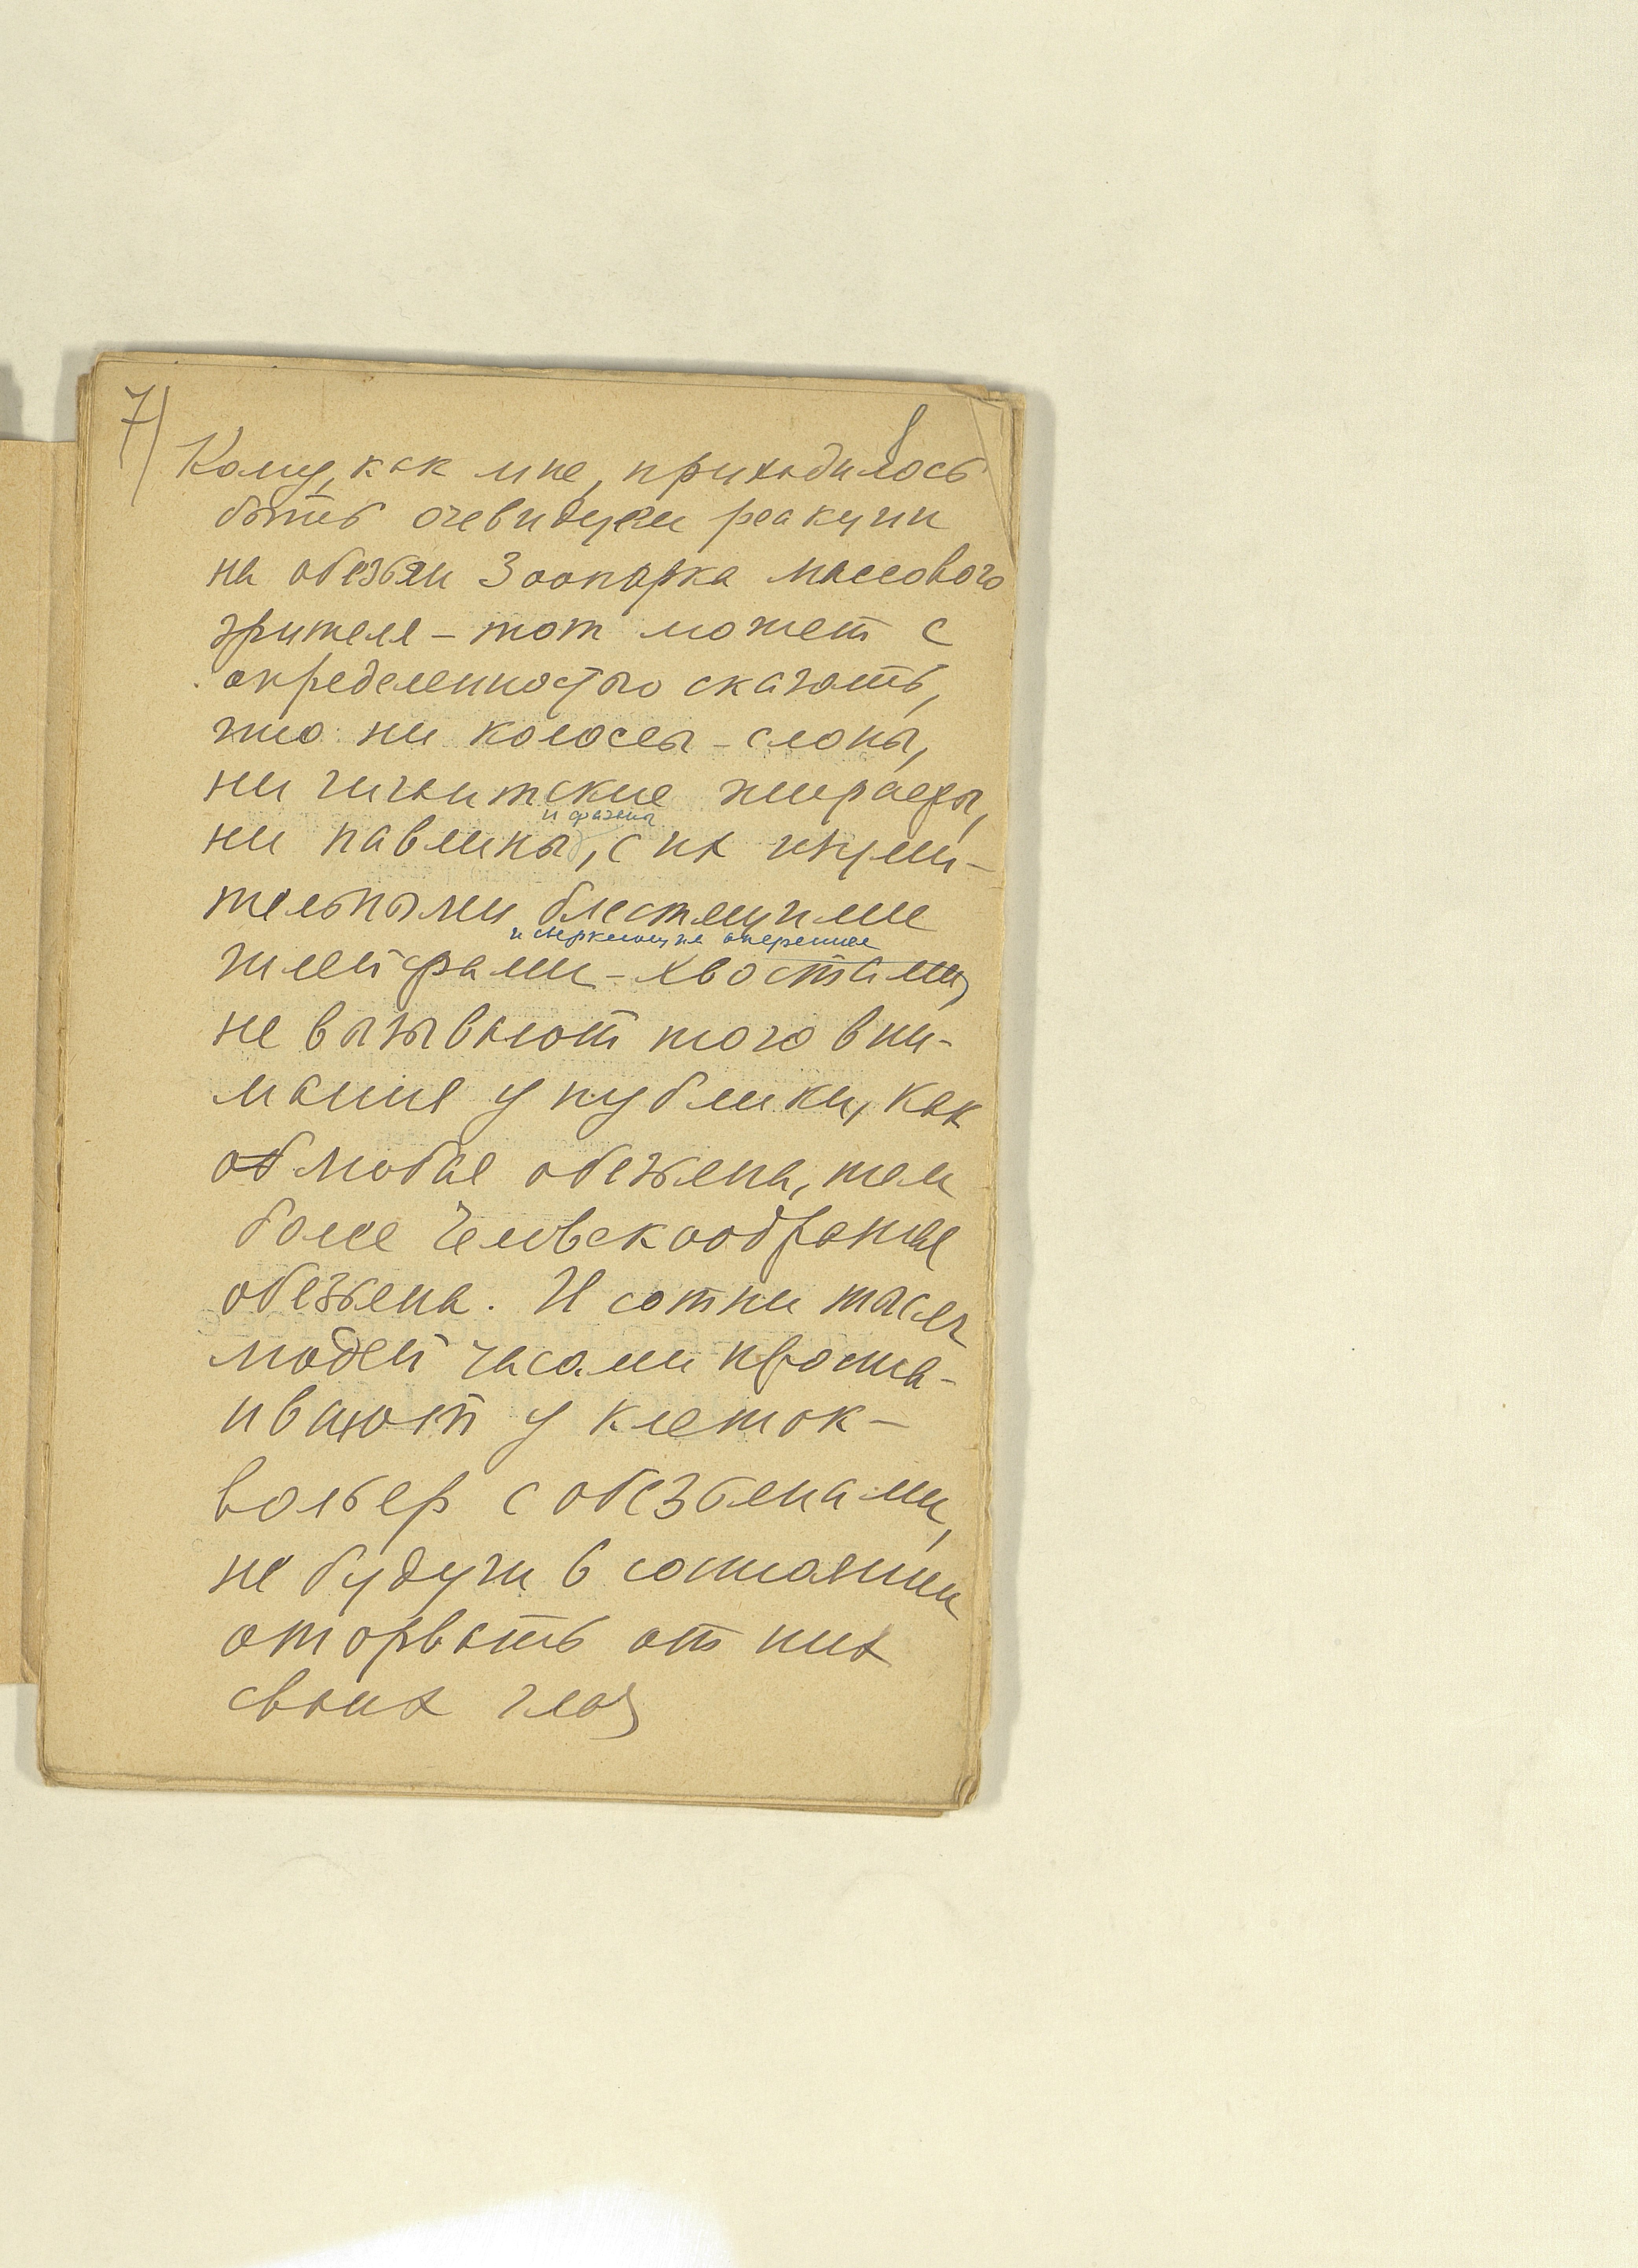 7)
8
Кому, как мне, приходилось
быть очевидцем реакции
на обезьян Зоопарка массового
зрителя – тот может с
определенностью сказать,
что ни колоссы – слоны,
ни гигантские жирафы,
и фазаны
ни павлины, с их изуми-
тельными блестящими
и сверкающим оперением
шлейфами – хвостами,
не вызывают того вни-
мания у публики, как
любая обезьяна, тем
более человекообразная
обезьяна. И сотни тысяч
людей часами проста-
ивают у клеток –
вольер с обезьянами,
не будучи в состоянии
оторвать от них
своих глаз